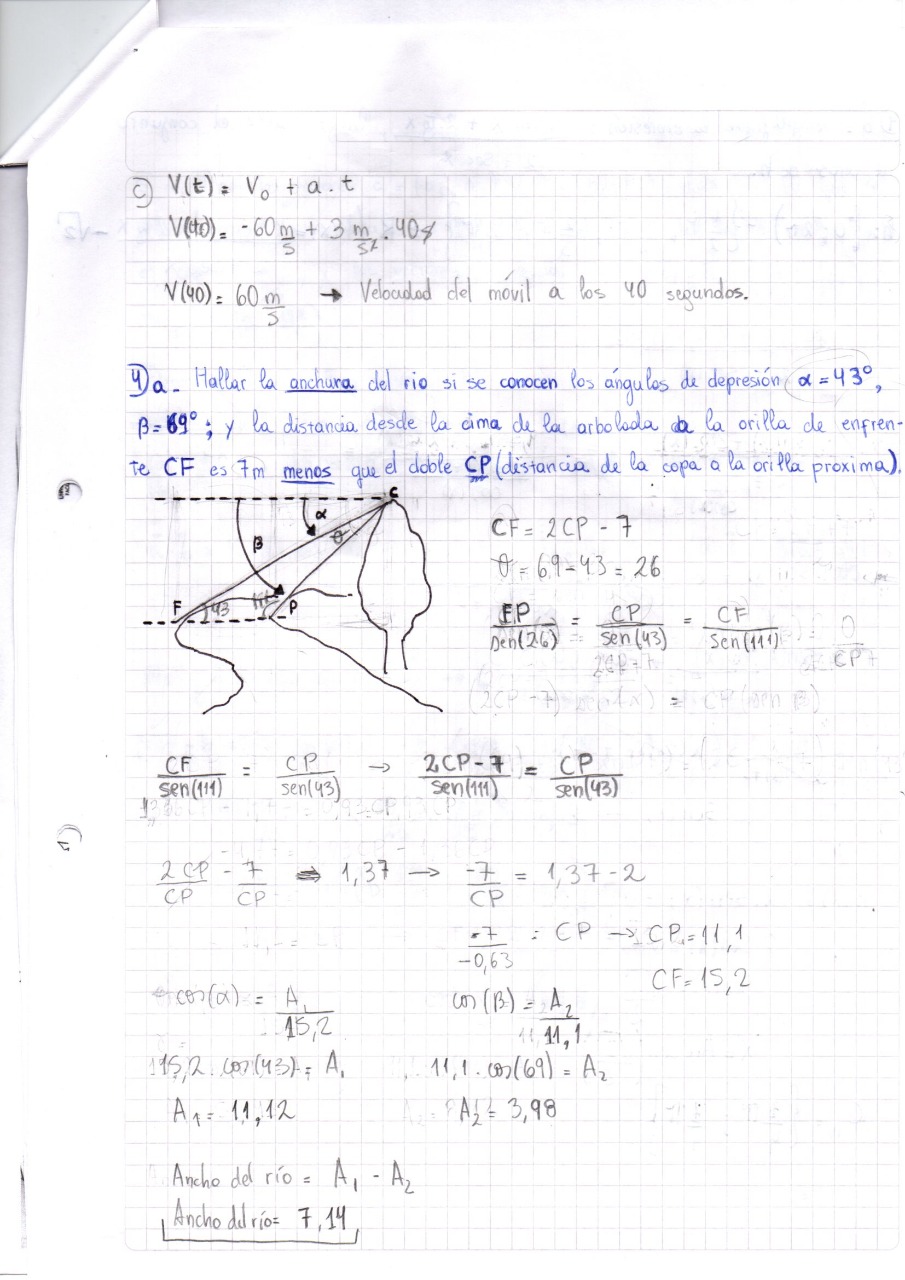 c) V(t) = V₀ + a . t
V(40) = -60 m/s + 3 m/s² . 40 s
V(40) = 60 m/s → Velocidad del móvil a los 40 segundos.
4) a - Hallar la anchura del rio si se conocen los ángulos de depresión α = 43°,
β = 69° ; y la distancia desde la cima de la arbolada a la orilla de enfren-
te CF es 7m menos que el doble CP (distancia de la copa a la orilla proxima).
C
α
β
θ
F
43
111
P
CF = 2CP - 7
θ = 69 - 43 = 26
FP/sen(26) = CP/sen(43) = CF/sen(111)
CF/sen(111) = CP/sen(43) → 2CP - 7/sen(111) = CP/sen(43)
2CP/CP - 7/CP = 1,37 → -7/CP = 1,37 - 2
-7/-0,63 = CP → CP = 11,1
CF = 15,2
cos(α) = A₁/15,2
cos(β) = A₂/11,1
15,2 . cos(43) = A₁
11,1 . cos(69) = A₂
A₁ = 11,12
A₂ = 3,98
Ancho del río = A₁ - A₂
Ancho del río = 7,14